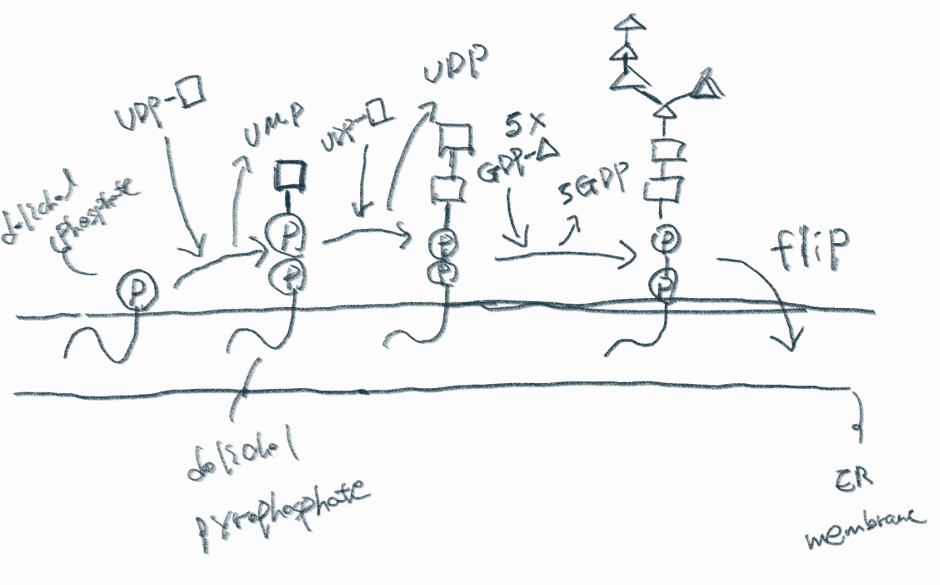 dolichol
phosphate
P
UDP-
UMP
P
P
UDP-
UDP
P
P
5x
GDP-
5GDP
P
P
flip
dolichol
pyrophosphate
ER
membrane